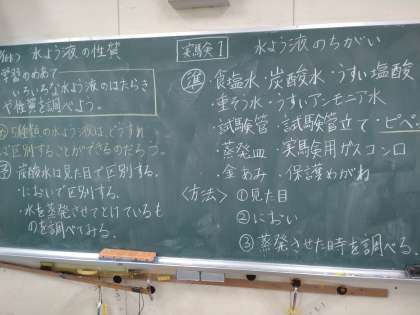 水よう液の性質
学習のめあて
いろいろな水よう液のはたらき
や性質を調べよう。
5種類の水よう液は、どうすれ
区別することができるのだろう。
予 炭酸水は見た目で区別する。
・においで区別する。
・水を蒸発させてとけているも
のを調べてみる。
実験1 水よう液のちがい
準 ・食塩水・炭酸水・うすい塩酸
・重そう水・うすいアンモニア水
・試験管・試験管立て・ピペ
・蒸発皿・実験用ガスコンロ
・金あみ・保護めがね
〈方法〉 ①見た目
②におい
③蒸発させた時を調べる。